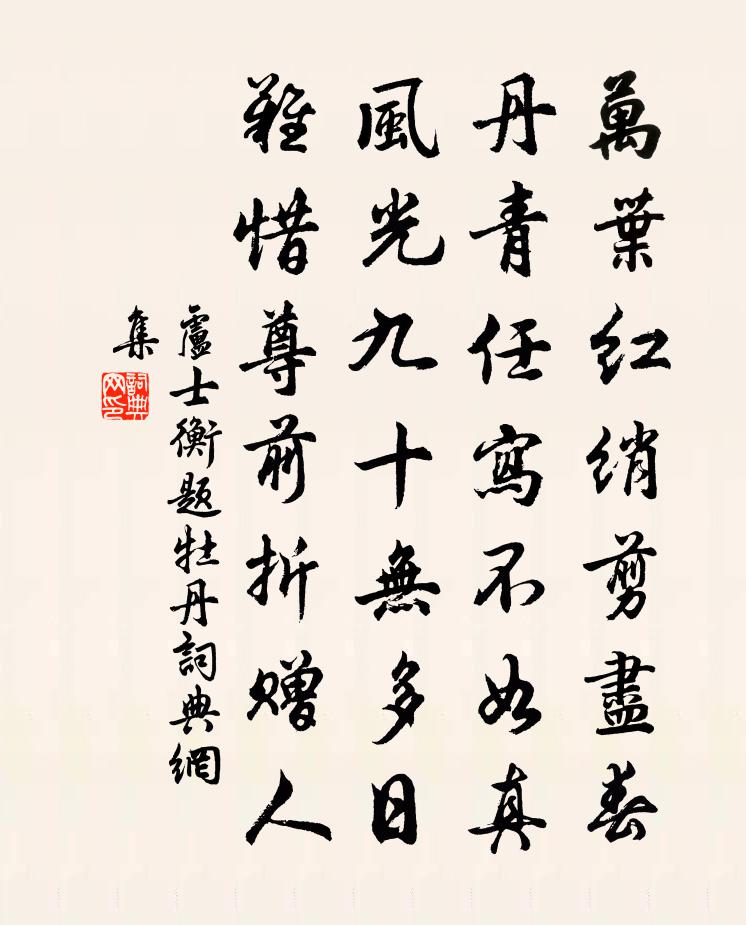 萬葉紅綃剪盡春
丹青任寫不如真
風光九十無多日
難惜尊前折贈人
盧士衡題牡丹詞典網
集
詞典網印